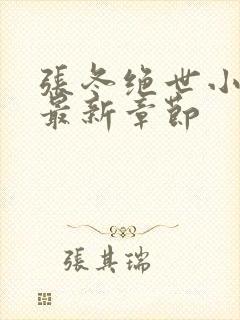 張冬绝世小
最新章節
張其瑞